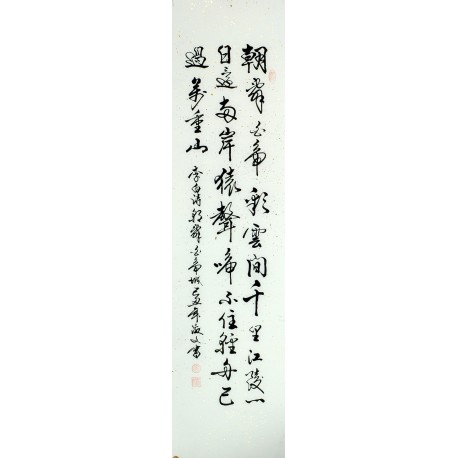 朝辭白帝彩雲間千里江陵一
日還兩岸猿聲啼不住輕舟已
過萬重山 李白詩朝辭白帝城己丑年淑文書